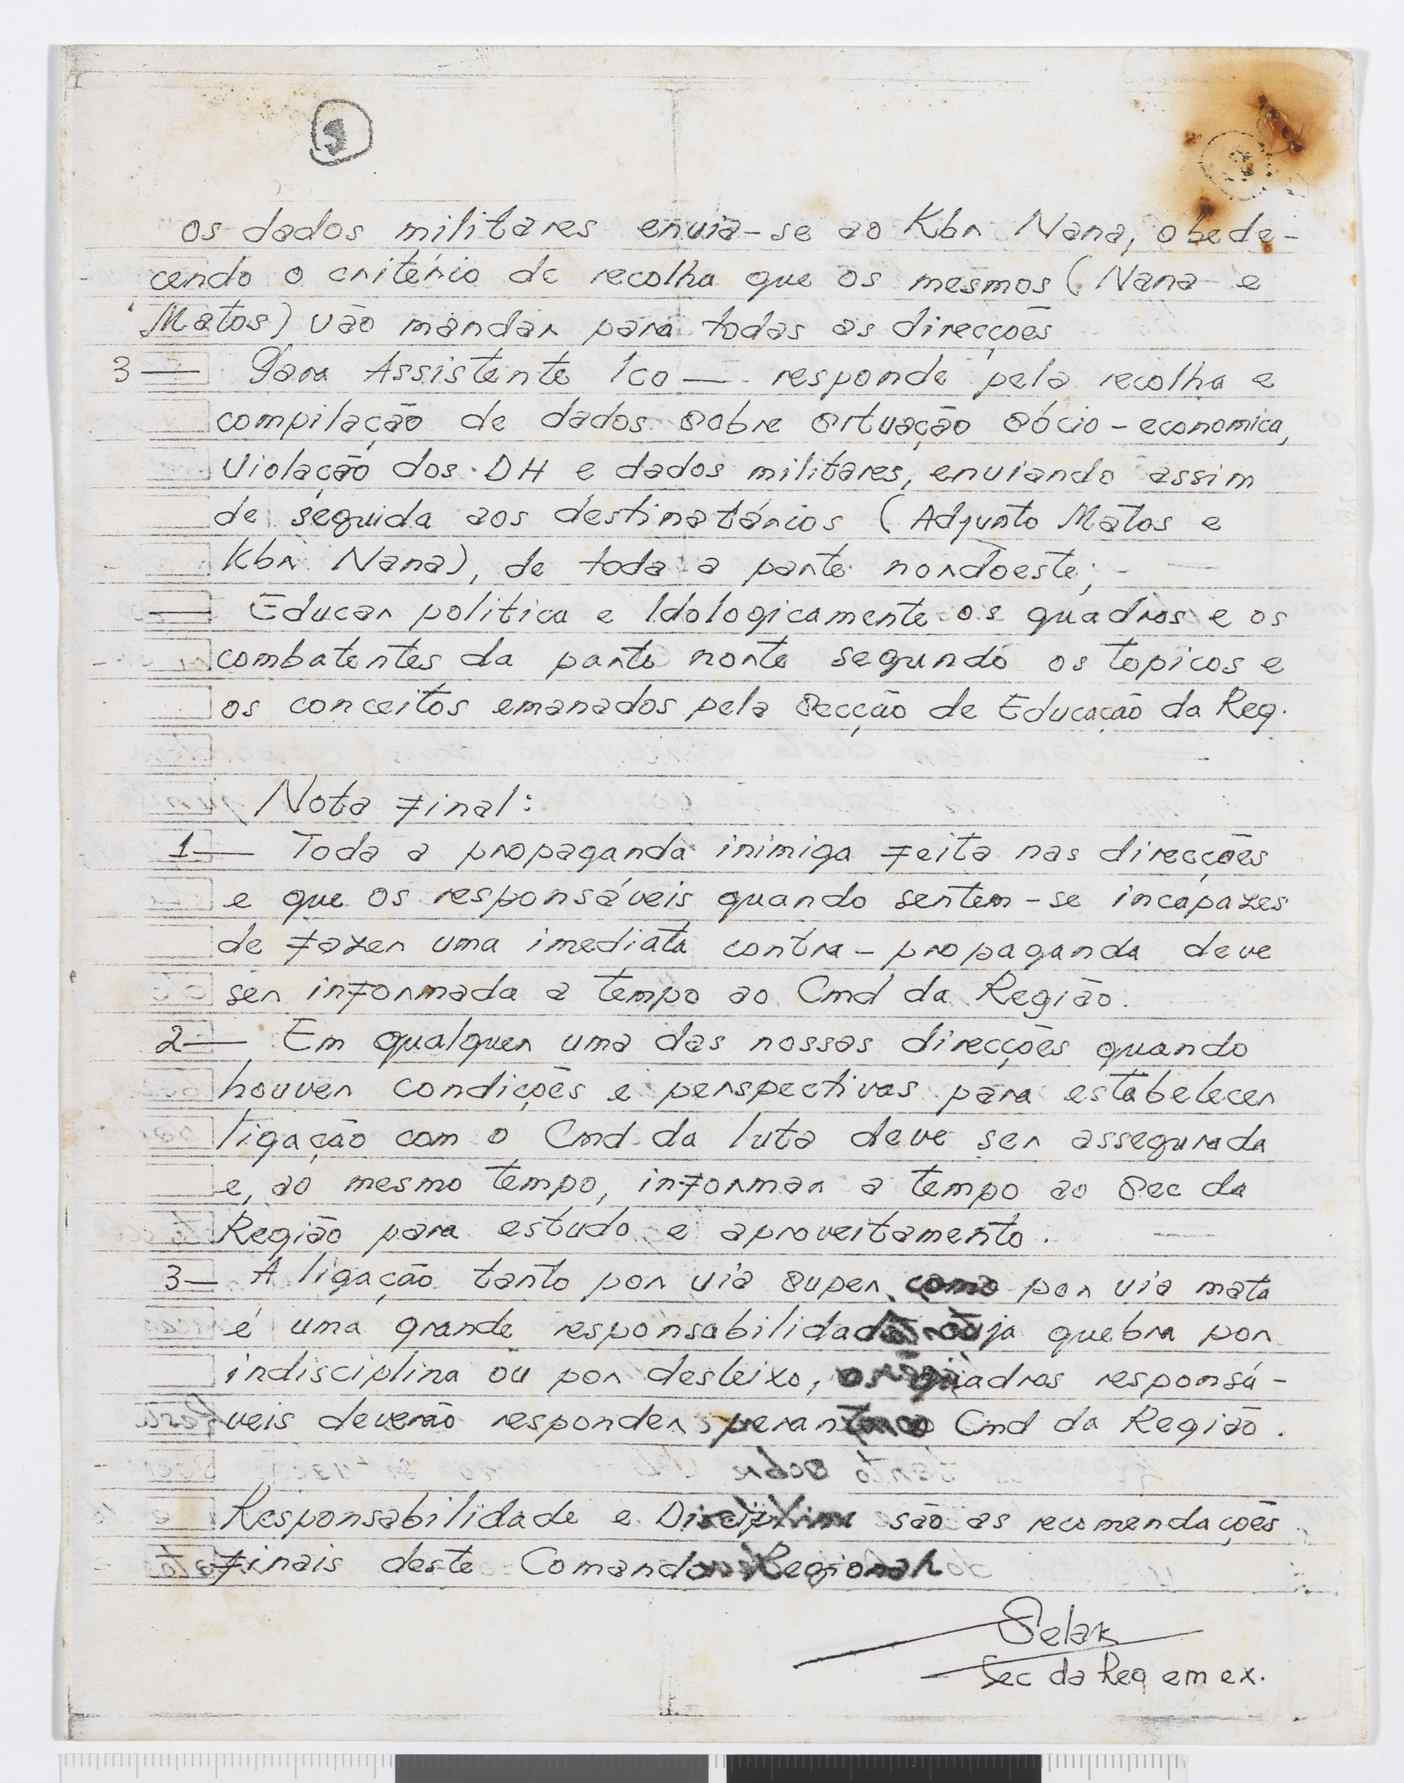 os dados militares envia-se ao Kbr Nana, obede-
cendo o critério de recolha que os mesmos (Nana e
Matos) vão mandar para todas as direcções
3 — Para Assistente Ico — responde pela recolha e
compilação de dados sobre situação sócio-economica,
violação dos DH e dados militares, enviando assim
de seguida aos destinatários (Adjunto Matos e
Kbr Nana), de toda a parte nordoeste;
— Educar politica e Idologicamente os quadros e os
combatentes da parte norte segundo os topicos e
os conceitos emanados pela Secção de Educação da Reg.
Nota Final:
1 — Toda a propaganda inimiga feita nas direcções
e que os responsáveis quando sentem-se incapazes
de fazer uma imediata contra-propaganda deve
ser informada a tempo ao Cmd da Região.
2 — Em qualquer uma das nossas direcções quando
houver condições e perspectivas para estabelecer
ligação com o Cmd da luta deve ser assegurada
e, ao mesmo tempo, informar a tempo ao Sec da
Região para estudo e aproveitamento.
3 — A ligação tanto por via super, como por via mata
é uma grande responsabilidade cuja quebra por
indisciplina ou por desleixo, os quadros responsá-
veis deverão responder perante o Cmd da Região.
Responsabilidade e Disciplina são as recomendações
finais deste Comando Regional
Selak
Sec da Reg em ex.